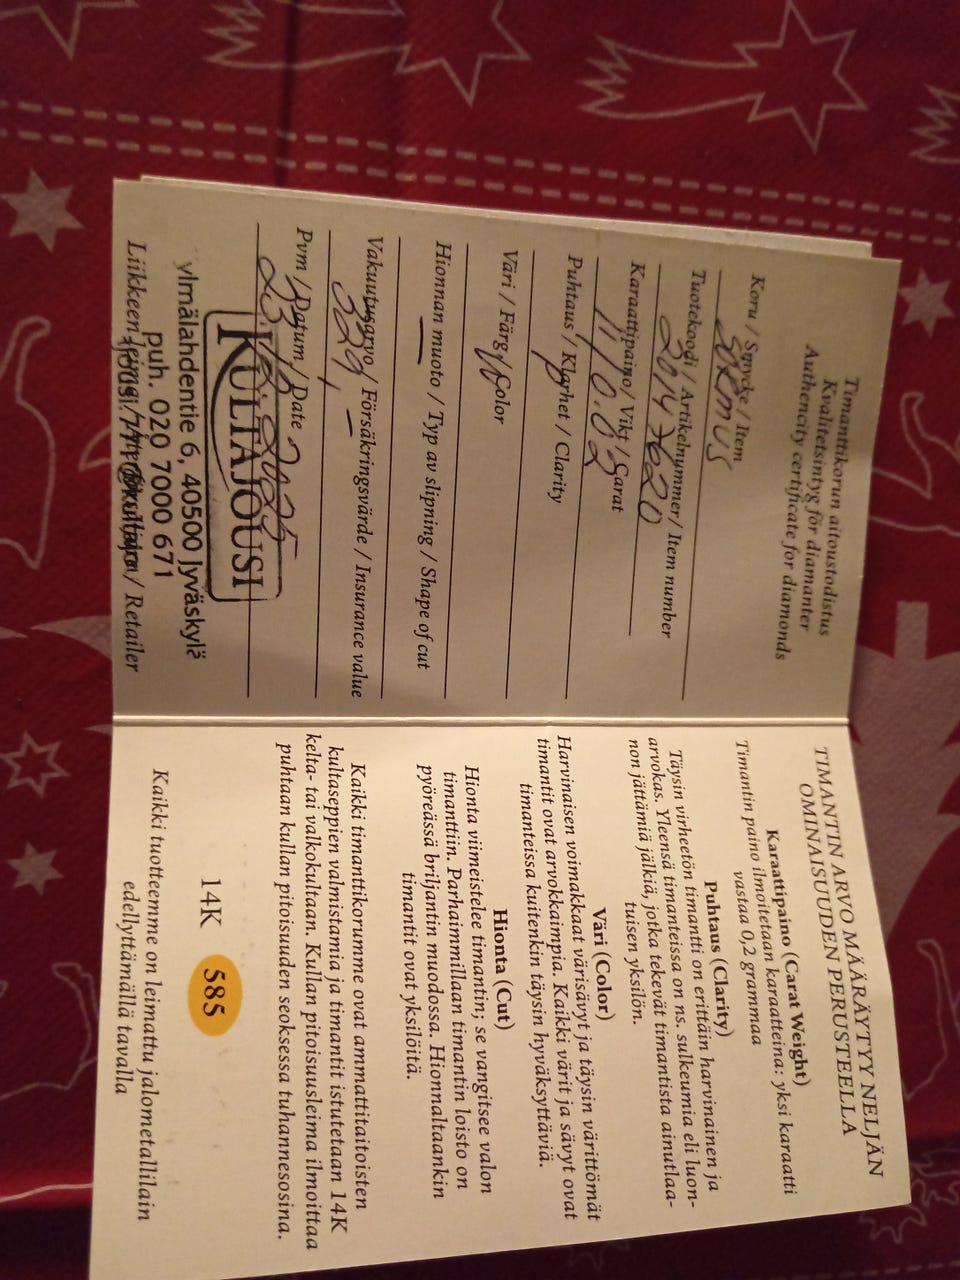 Timanttikorun aitoustodistus
Kvalitetsintyg för diamanter
Authencity certificate for diamonds
Koru / Smycke / Item
sormus
Tuotekoodi / Artikelnummer / Item number
20147620
Karaattipaino / Vikt / Carat
11/0.02
Puhtaus / Klarhet / Clarity
Väri / Färg / Color
Hionnan muoto / Typ av slipning / Shape of cut
Vakuutusarvo / Försäkringsvärde / Insurance value
329,-
Pvm / Datum / Date
23.12.2025
KULTAJOUSI
Ylmälahdentie 6, 40500 Jyväskylä
puh. 020 7000 671
Liikkeen leima / Retailer
TIMANTIN ARVO MÄÄRÄYTYY NELJÄN
OMINAISUUDEN PERUSTEELLA
Karaattipaino (Carat Weight)
Timantin paino ilmoitetaan karaatteina: yksi karaatti
vastaa 0,2 grammaa
Puhtaus (Clarity)
Täysin virheetön timantti on erittäin harvinainen ja
arvokas. Yleensä timanteissa on ns. sulkeumia eli luon-
non jättämiä jälkiä, jotka tekevät timantista ainutlaa-
tuisen yksilön.
Väri (Color)
Harvinaisen voimakkaat värisävyt ja täysin värittömät
timantit ovat arvokkaimpia. Kaikki värit ja sävyt ovat
timanteissa kuitenkin täysin hyväksyttäviä.
Hionta (Cut)
Hionta viimeistelee timantin; se vangitsee valon
timanttiin. Parhaimmillaan timantin loisto on
pyöreässä briljantin muodossa. Hionnaltaankin
timantit ovat yksilöitä.
Kaikki timanttikorumme ovat ammattitaitoisten
kultaseppien valmistamia ja timantit istutetaan 14K
kelta- tai valkokultaan. Kullan pitoisuusleima ilmoittaa
puhtaan kullan pitoisuuden seoksessa tuhannesosina.
14K 585
Kaikki tuotteemme on leimattu jalometallilain
edellyttämällä tavalla